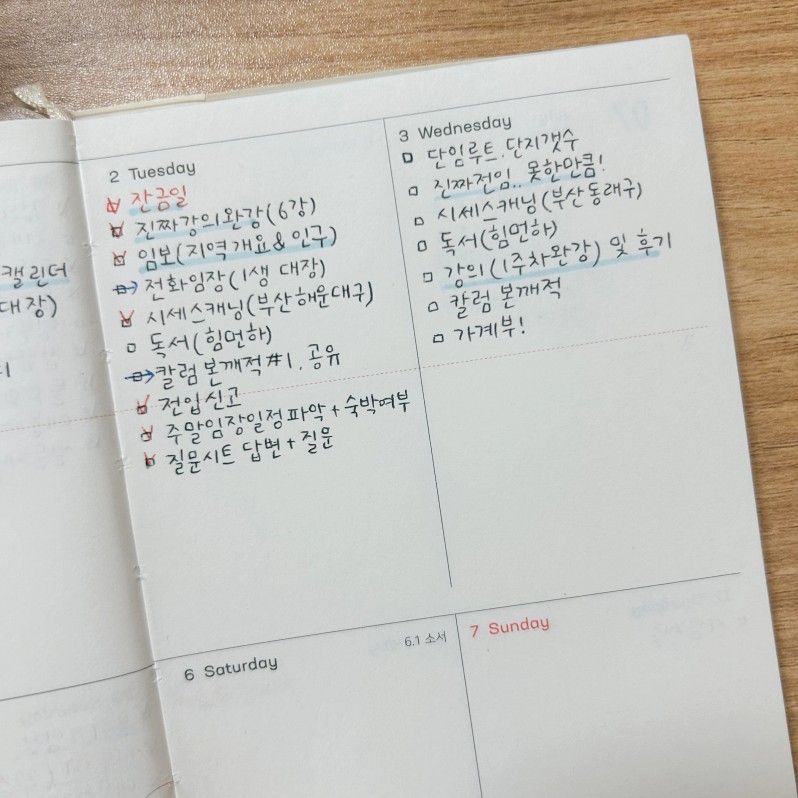 캘린더
대장)
2 Tuesday
잔금일
진짜강의완강(6강)
임보(지역개요 & 인구)
전화임장(1생 대장)
시세스캐닝(부산해운대구)
독서(힘먼하)
칼럼 본깨적 #1. 공유
전입신고
주말임장일정파악 + 숙박여부
질문시트 답변 + 질문
3 Wednesday
단임루트. 단지갯수
진짜전임.. 못한만큼!
시세스캐닝(부산동래구)
독서(힘먼하)
강의(1주차완강) 및 후기
칼럼 본깨적
가계부!
6 Saturday
6.1 소서
7 Sunday